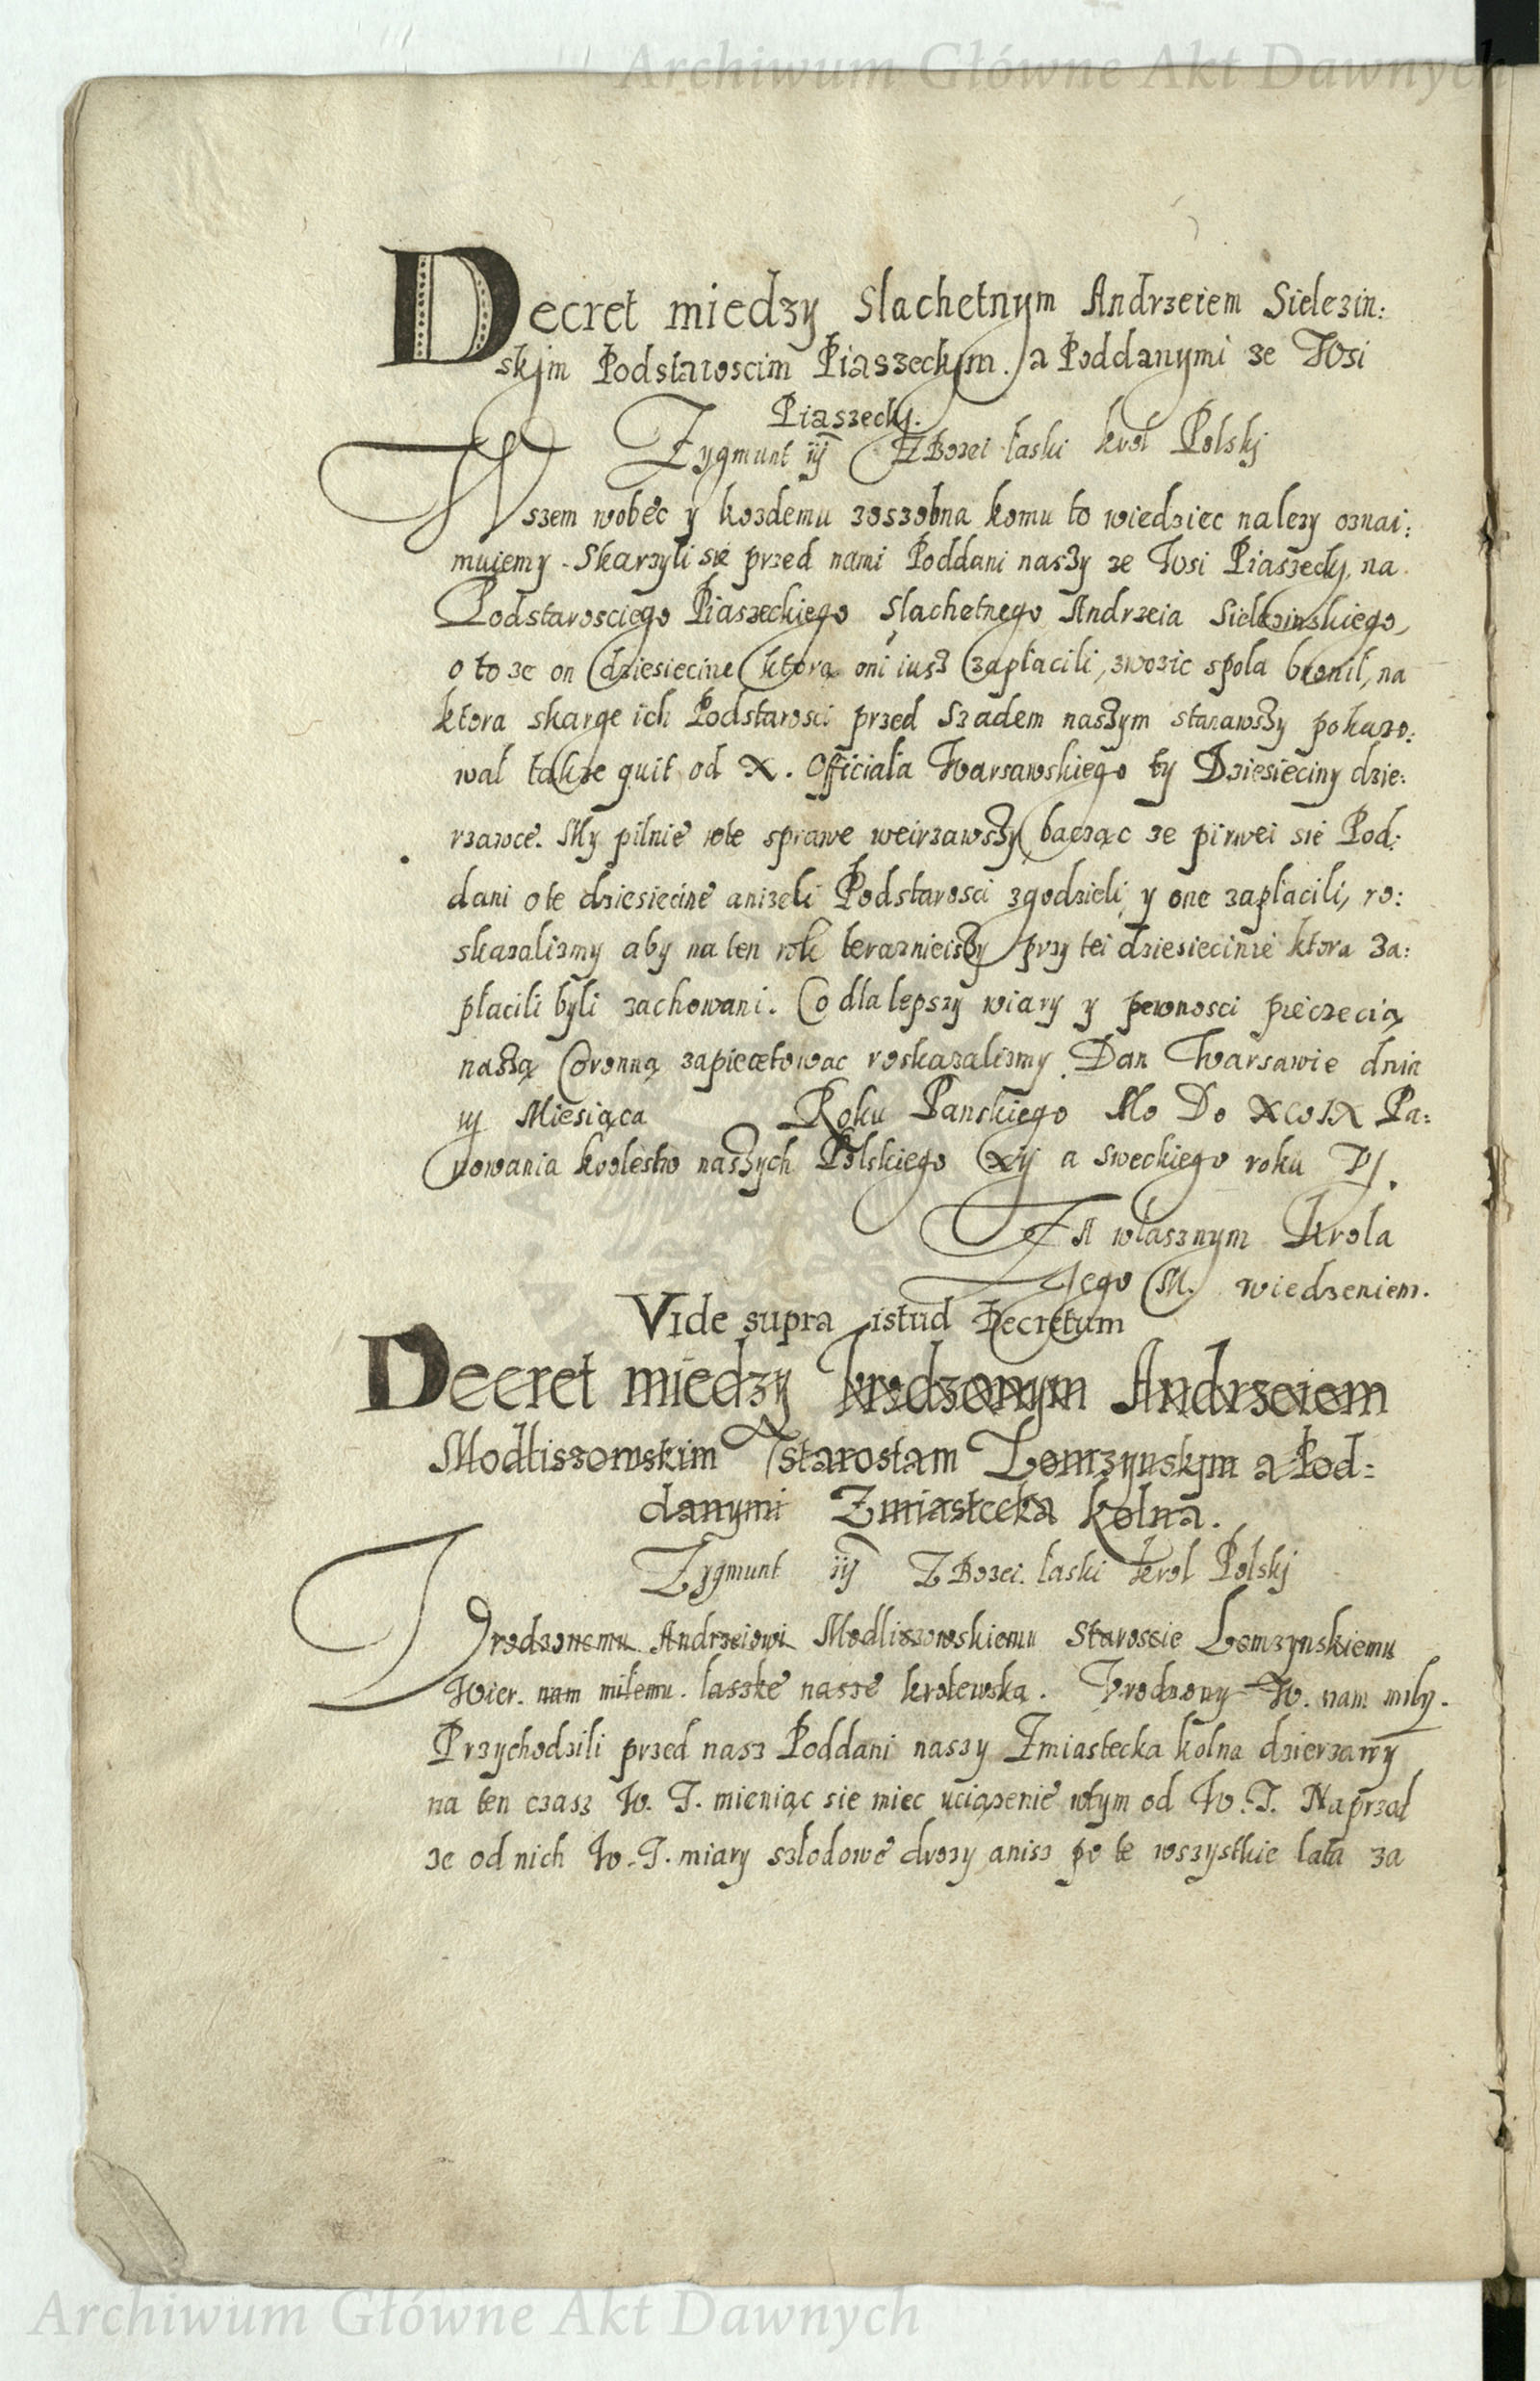 Archiwum Główne Akt Dawnych
Decret miedzy Slachetnym Andrzeiem Sielezin:
skim Podstaroscim Piaszeckym. a Poddanymi ze Wsi
Piaszecky.
Zygmunt iij Z Bozei łaski krol Polskj
Wszem wobec y kozdemu zoszobna komu to wiedziec nalezy oznai:
muiemy. Skarzyli sie przed nami Poddani naszy ze Wsi Piaszecky, na
Podstarosciego Piaszeckiego Slachetnego Andrzeia Sielezinskiego,
o to ze on dziesiecine ktorą oni iusz zapłacili, zwozic spola bronil, na
ktora skargę ich Podstarosci przed Szadem naszym stanawszy pokazo:
wał takze quit od X. Officiała Warsawskiego ty Dziesieciny dzie:
rzawce. My pilnie wte sprawe weirzawszy bacząc ze pirwei sie Pod:
dani o te dziesiecine anizeli Podstarosci zgodzieli y one zapłacili, ro:
skazalizmy aby na ten rok teraznieiszy przy tei dziesiecinie ktora za:
płacili byli zachowani. Co dla lepszy wiary y pewnosci pieczecią
naszą Coronną zapieczetowac roskazalizmy. Dan Warsawie dnia
iij Miesiąca Roku Panskiego Mo Do XCVIX Pa:
nowania krolestw naszych Polskiego xij a sweckiego roku VI.
ZA własznym Krola
Jego M. wiedzeniem.
Vide supra istud Decretum
Decret miedzy Vrodzonym Andrzeiem
Modliszowskim starostam Lomzynskym a Pod:
danymi Zmiastecka kolna.
Zygmunt iij Z Bozei łaski krol Polskj
Vrodzonemu Andrzeiowi Modliszowskiemu Staroscie Lomzynskiemu
Wier. nam miłemu. laszke nasze krolewską. Vrodzony W. nam miły.
Przychodzili przed nasz Poddani naszy Zmiastecka kolna dzierzawy
na ten czasz W. T. mieniąc sie miec uciązenie wtym od W. T. Naprzod
ze od nich W. T. miary szłodowe drozy anisz po te wszystkie lata za
Archiwum Główne Akt Dawnych